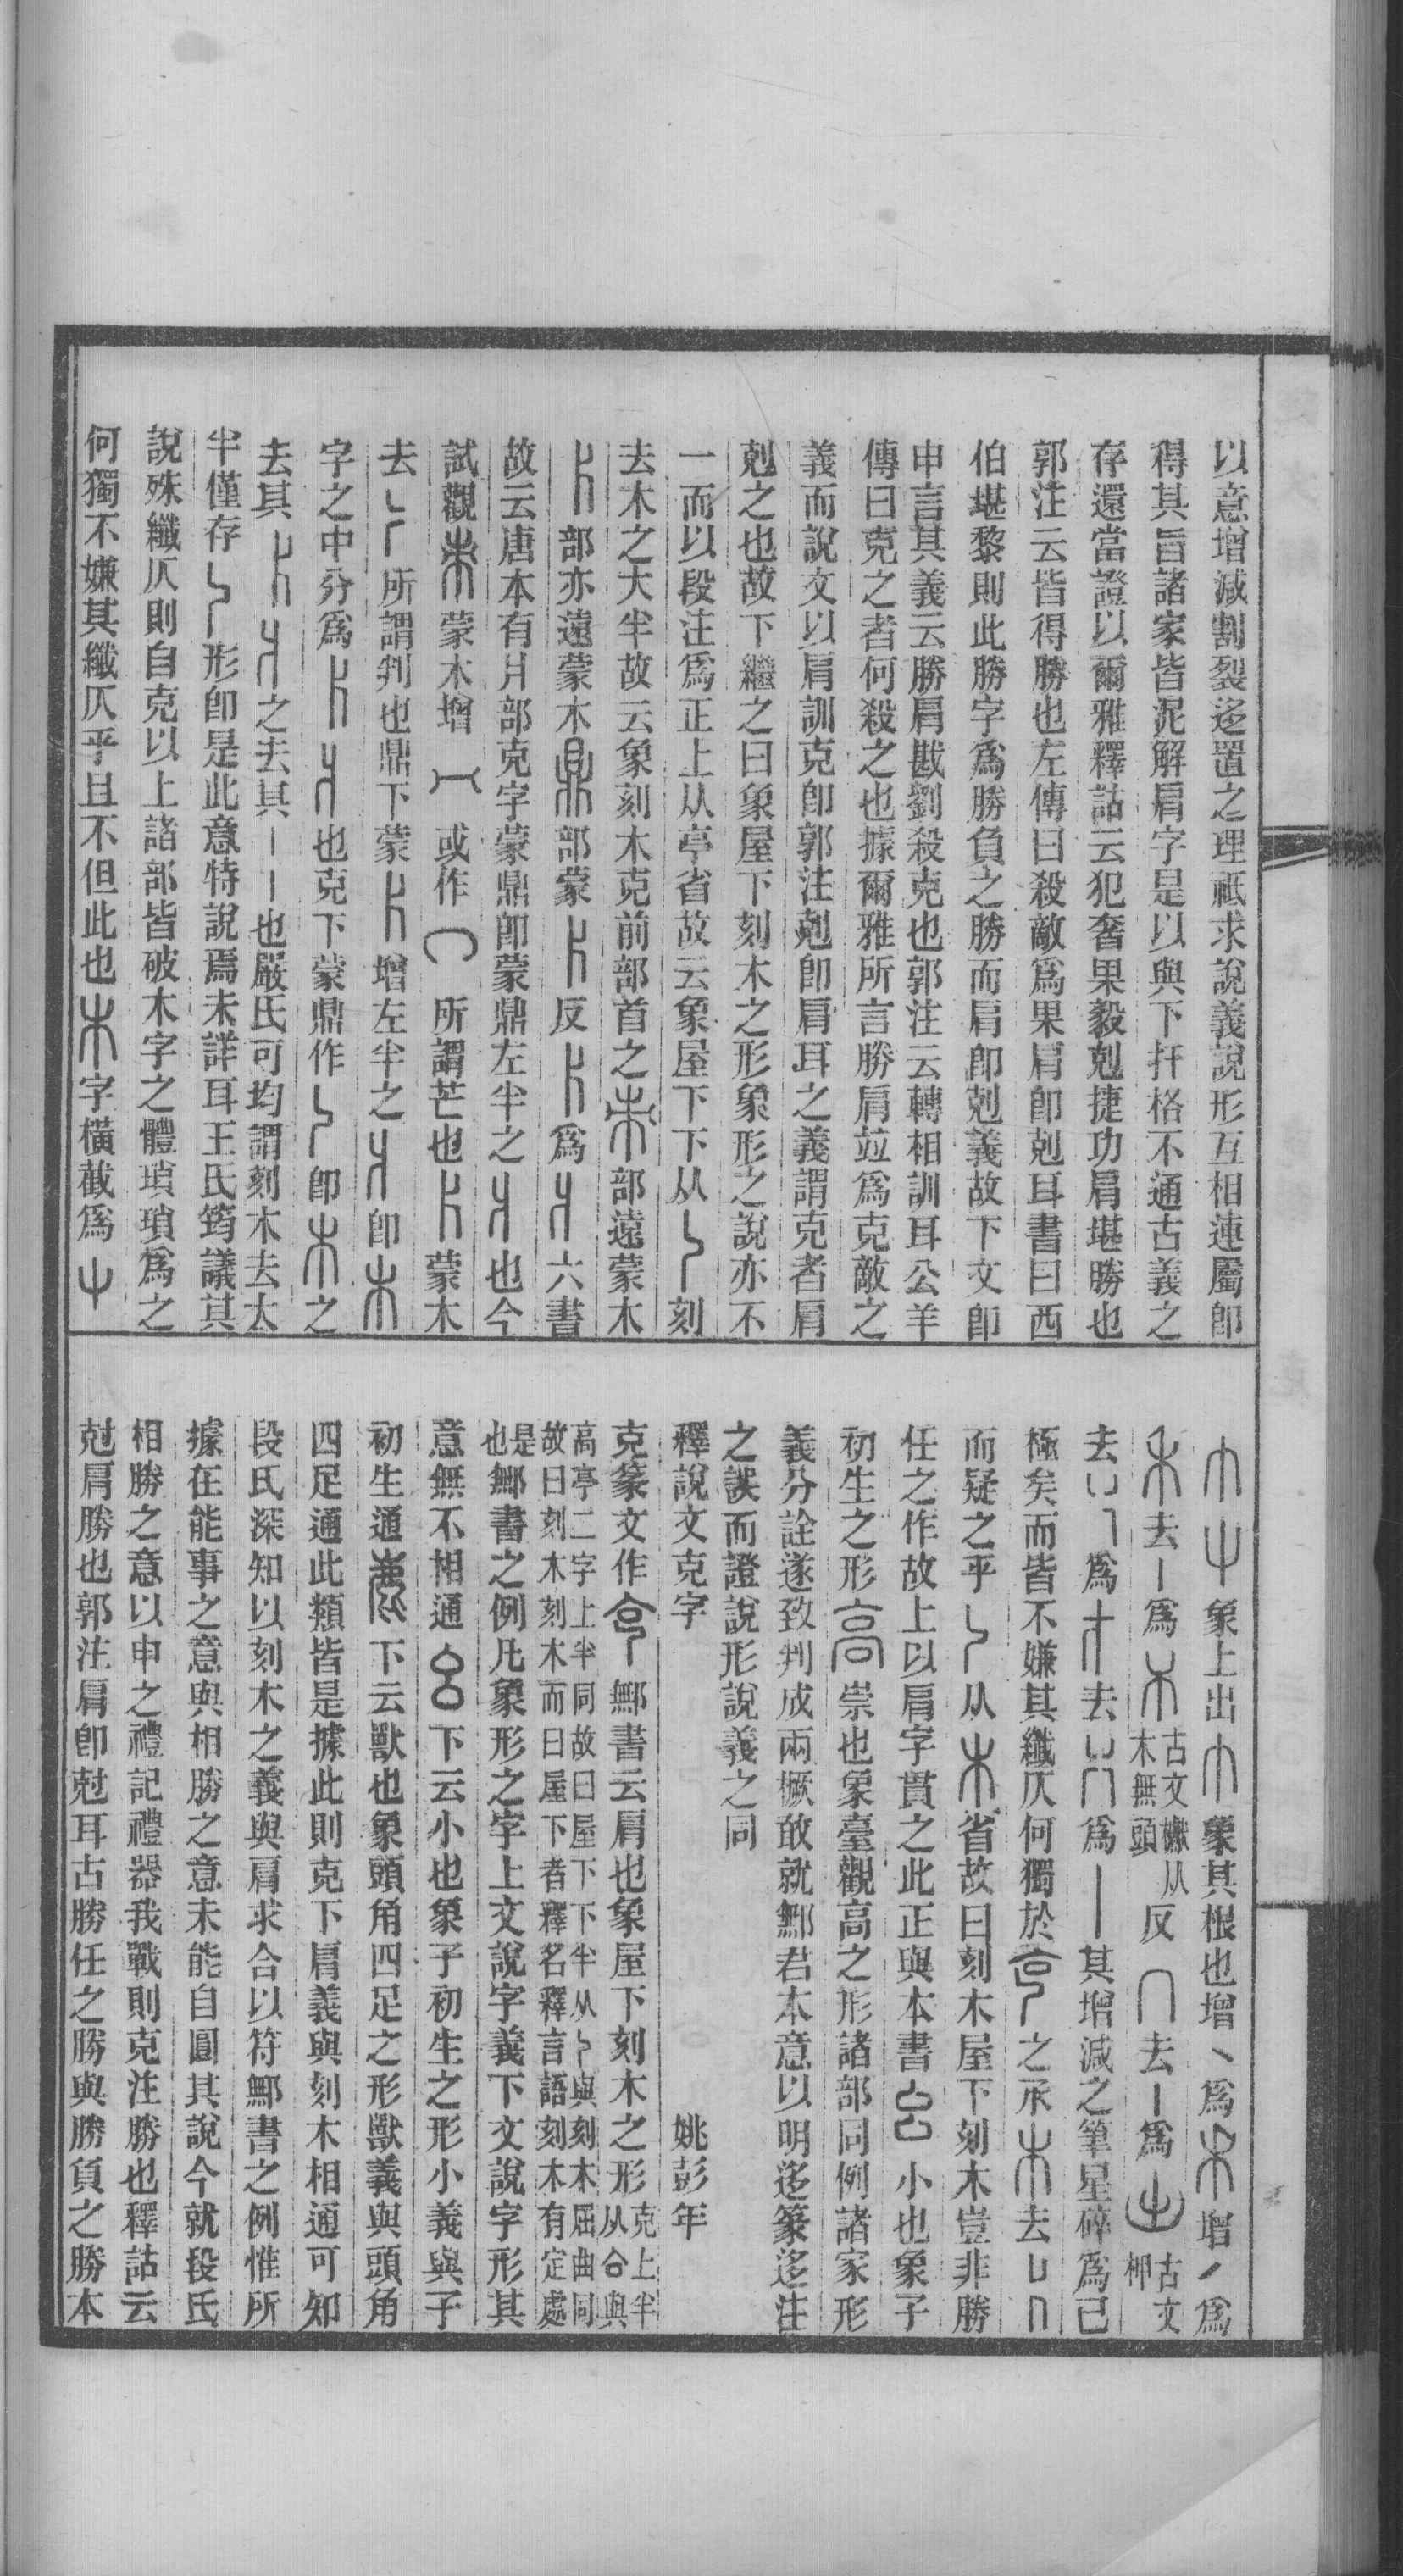 以意增減割裂迻置之理祗求說義說形互相連屬卽
得其旨諸家皆泥解肩字是以與下扞格不通古義之
存還當證以爾雅釋詁云犯奢果毅剋捷功肩堪勝也
郭注云皆得勝也左傳曰殺敵爲果肩卽剋耳書曰西
伯堪黎則此勝字爲勝負之勝而肩卽剋義故下文卽
申言其義云勝肩戡劉殺克也郭注云轉相訓耳公羊
傳曰克之者何殺之也據爾雅所言勝肩竝爲克敵之
義而說文以肩訓克卽郭注剋卽肩耳之義謂克者肩
剋之也故下繼之曰象屋下刻木之形象形之說亦不
一而以段注爲正上从亭省故云象屋下下从刻
去木之大半故云象刻木克前部首之部遠蒙木
部亦遠蒙木部蒙反爲六書
故云唐本有爿部克字蒙鼎卽蒙鼎左半之也今
試觀蒙木增或作所謂芒也蒙木
去所謂判也鼎下蒙增左半之卽
字之中分爲也克下蒙鼎作卽之
去其之去其也嚴氏可均謂刻木去太
半僅存形卽是此意特說焉未詳耳王氏筠議其
說殊纖仄則自克以上諸部皆破木字之體瑣瑣爲之
何獨不嫌其纖仄乎且不但此也字橫截爲
象上出象其根也增丶爲增丿爲
去丨爲古文㰅从木無頭反去丨爲古文㭋
去爲去爲丨其增減之筆星碎爲已
極矣而皆不嫌其纖仄何獨於之承去
而疑之乎从省故曰刻木屋下刻木豈非勝
任之作故上以肩字貫之此正與本書小也象子
初生之形崇也象臺觀高之形諸部同例諸家形
義分詮遂致判成兩橛敀就鄦君本意以明迻篆迻注
之誤而證說形說義之同
釋說文克字 姚彭年
克篆文作鄦書云肩也象屋下刻木之形克上半从與
高亭二字上半同故曰屋下下半从與刻木屈曲同
故曰刻木刻木而曰屋下者釋名釋言語刻木有定處
是也鄦書之例凡象形之字上文說字義下文說字形其
意無不相通下云小也象子初生之形小義與子
初生通下云獸也象頭角四足之形獸義與頭角
四足通此類皆是據此則克下肩義與刻木相通可知
段氏深知以刻木之義與肩求合以符鄦書之例惟所
據在能事之意與相勝之意未能自圓其說今就段氏
相勝之意以申之禮記禮器我戰則克注勝也釋詁云
尅肩勝也郭注肩卽尅耳古勝任之勝與勝負之勝本